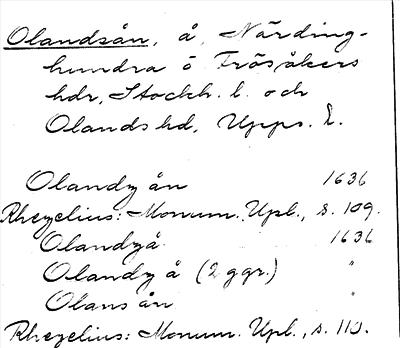 Olandsån, å, Närding-
hundra o Frösåkers
hdr, Stockh. l. och
Olands hd, Upps. l.
Olandz ån 1636
Rhezelius: Monum. Upl., s. 109.
Olandzå 1636
Olandz å (2 ggr.) "
Olans ån "
Rhezelius: Monum. Upl., s. 113.